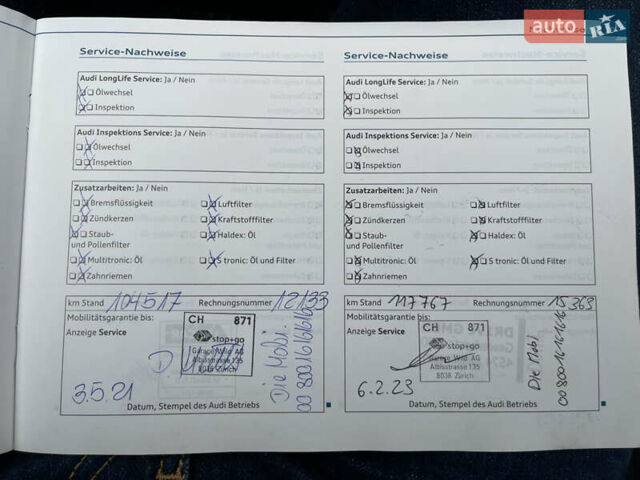 auto RIA
Service-Nachweise
Audi LongLife Service: Ja / Nein
Ölwechsel
Inspektion
Audi Inspektions Service: Ja / Nein
Ölwechsel
Inspektion
Zusatzarbeiten: Ja / Nein
Bremsflüssigkeit
Luftfilter
Zündkerzen
Kraftstofffilter
Staub-
und Pollenfilter
Haldex: Öl
Multitronic: Öl
S tronic: Öl und Filter
Zahnriemen
km Stand 104517
Rechnungsnummer 12133
Mobilitätsgarantie bis:
Anzeige Service
CH 871
stop+go
Garage Wild AG
Albisstrasse 135
8038 Zürich
Die Mobi.
3.5.21
Datum, Stempel des Audi Betriebs
Service-Nachweise
Audi LongLife Service: Ja / Nein
Ölwechsel
Inspektion
Audi Inspektions Service: Ja / Nein
Ölwechsel
Inspektion
Zusatzarbeiten: Ja / Nein
Bremsflüssigkeit
Luftfilter
Zündkerzen
Kraftstofffilter
Staub-
und Pollenfilter
Haldex: Öl
Multitronic: Öl
S tronic: Öl und Filter
Zahnriemen
km Stand 117767
Rechnungsnummer 15363
Mobilitätsgarantie bis:
Anzeige Service
CH 871
stop+go
Garage Wild AG
Albisstrasse 135
8038 Zürich
Die Mobi
00800 16161616
6.2.23
Datum, Stempel des Audi Betriebs